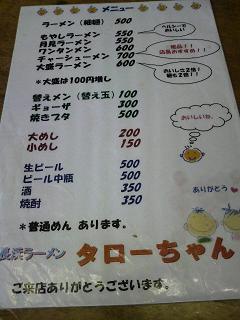 メニュー
ラーメン（細麺） 500
もやしラーメン 550
月見ラーメン 550
ワンタンメン 600
チャーシューメン 700
大盛ラーメン 600
ヘルシーで
おいしい
絶品！！
店長おすすめ！！
おいしさ2倍！
麺も2倍！
＊大盛は100円増し
替えメン（替え玉） 100
ギョーザ 300
焼きブタ 500
おいしいね。
大めし 200
小めし 150
生ビール 500
ビール中瓶 500
酒 350
焼酎 350
ありがとう
＊普通めん あります。
長浜ラーメン タローちゃん
ご来店ありがとうございます。